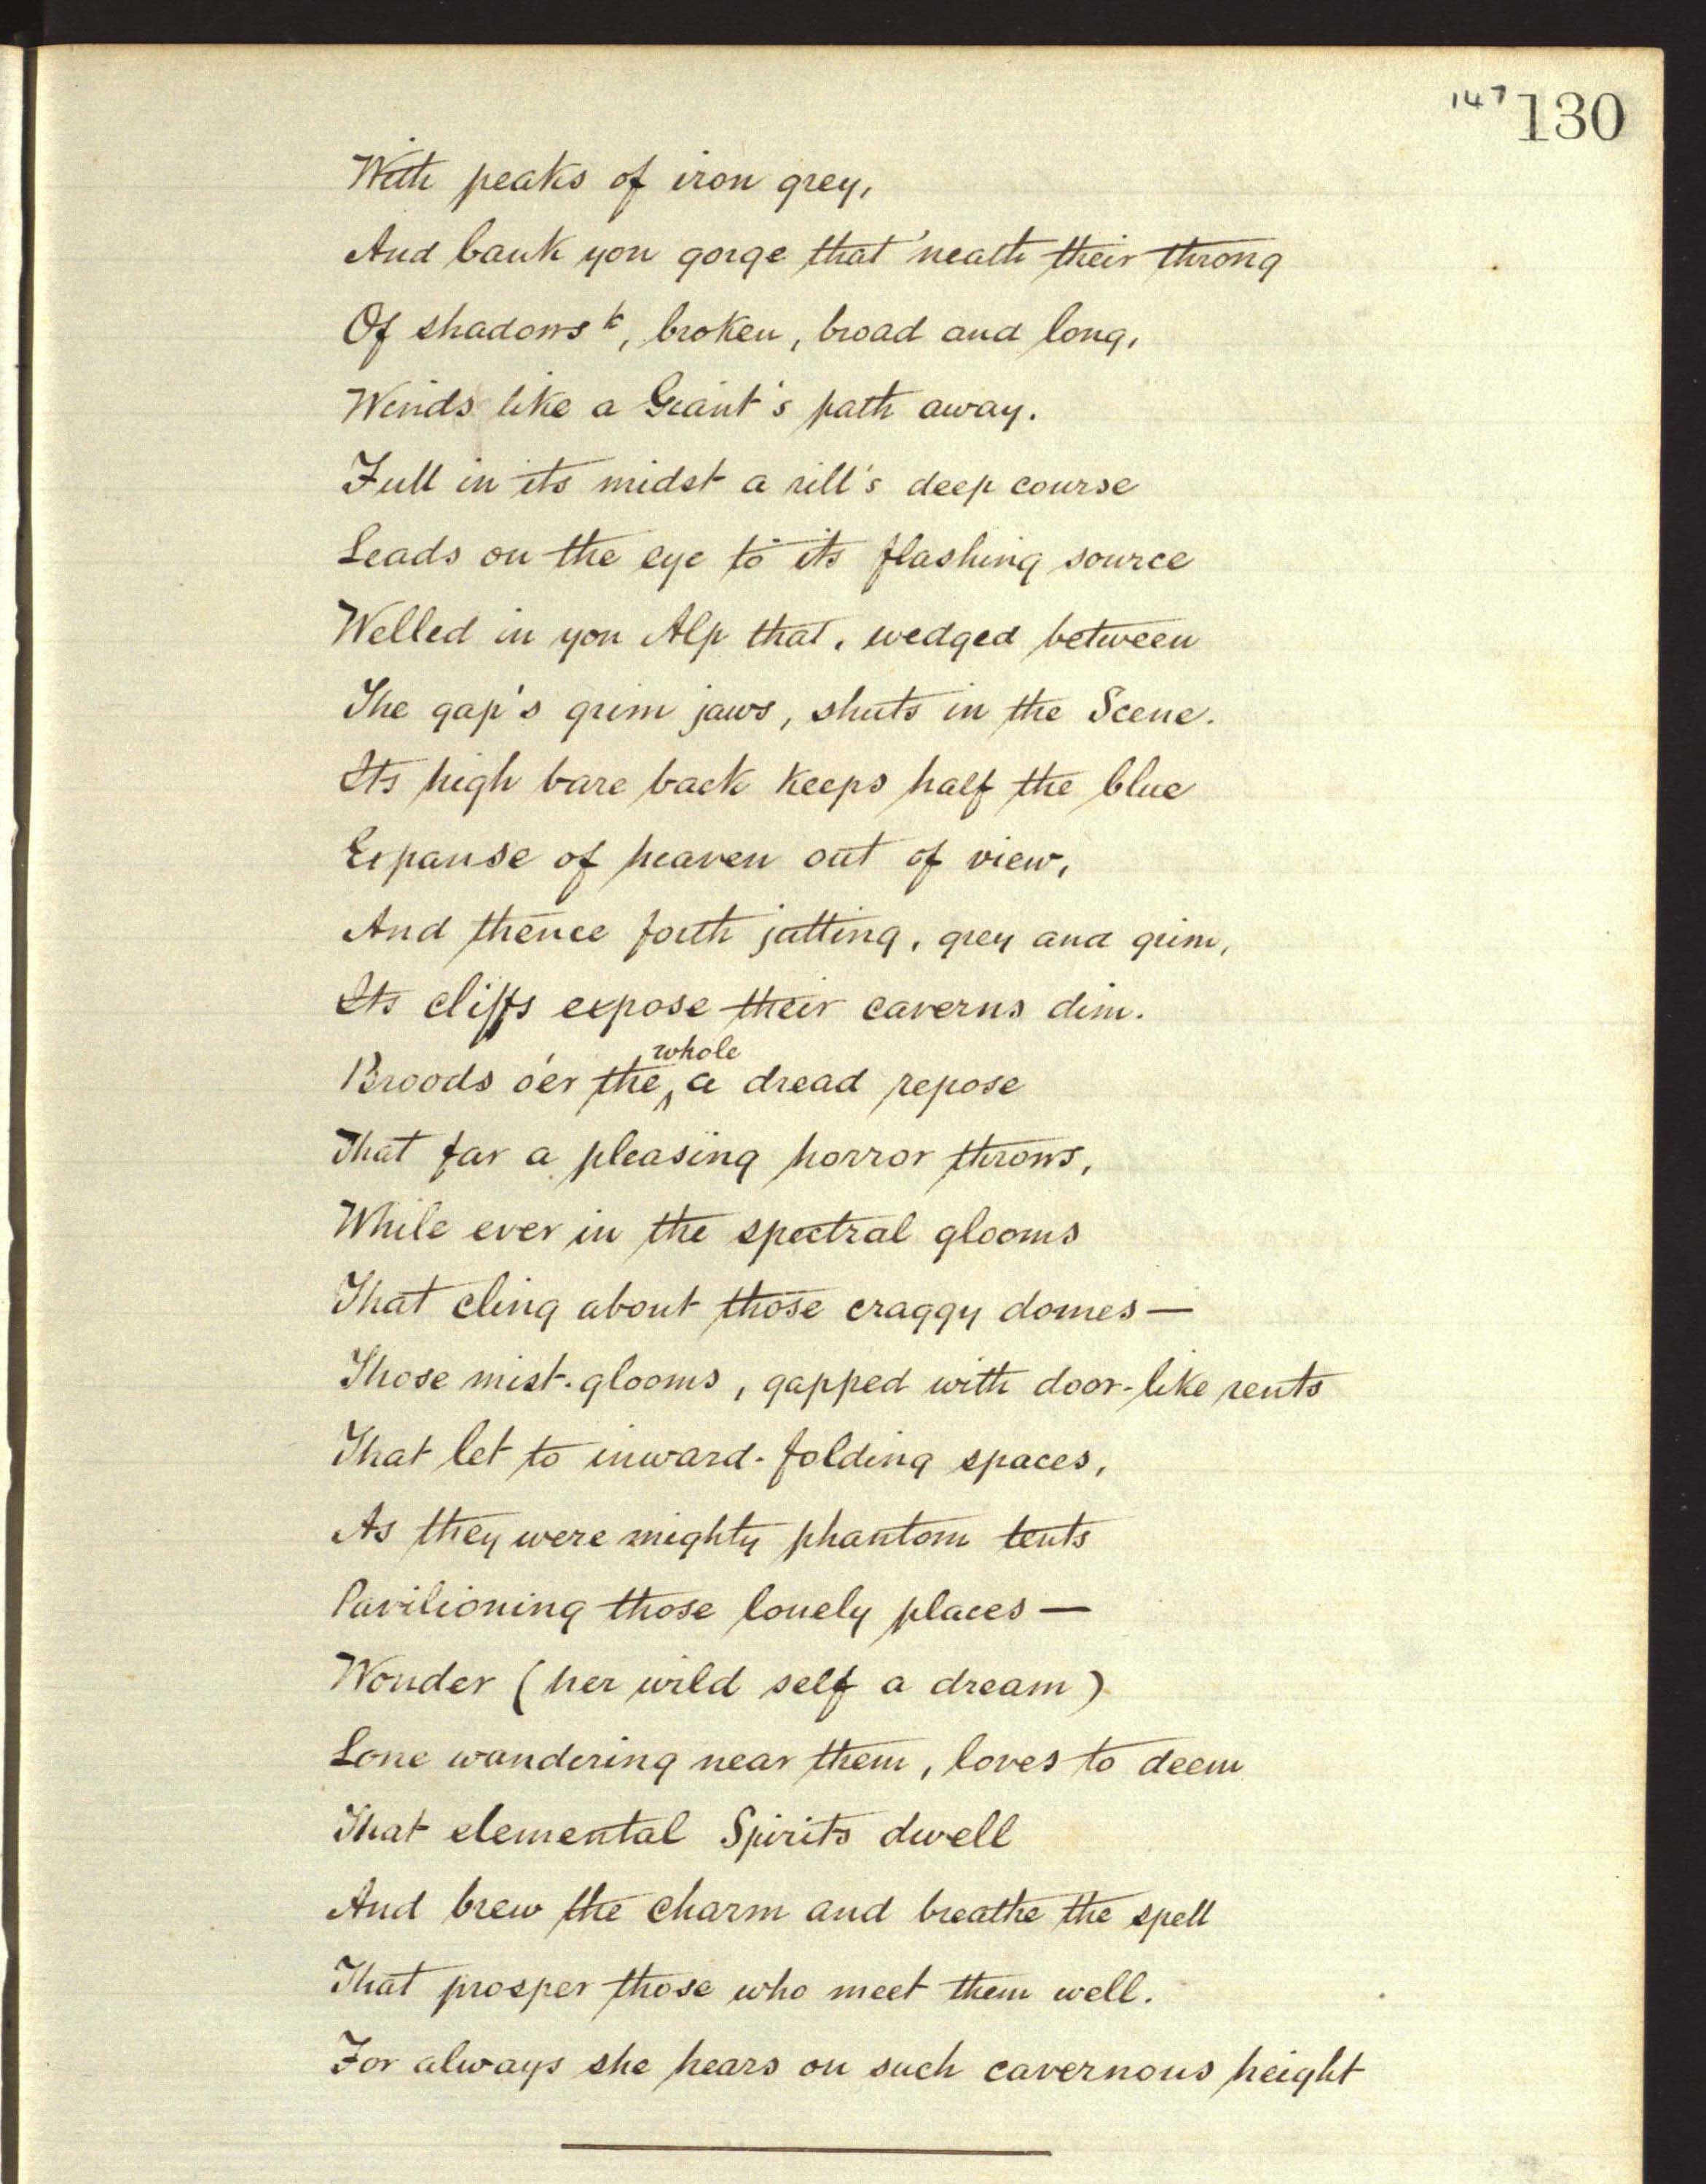 147 130
With peaks of iron grey,
And bank yon gorge that 'neath their throng
Of shadows, broken, broad and long,
Winds like a Giant's path away.
Full in its midst a rill's deep course
Leads on the eye to its flashing source
Welled in yon Alp that, wedged between
The gap's grim jaws, shuts in the Scene.
Its high bare back keeps half the blue
Expanse of heaven out of view,
And thence forth jutting, grey and grim,
Its cliffs expose their caverns dim.
whole
Broods o'er the a dread repose
That far a pleasing horror throws,
While ever in the spectral glooms
That cling about those craggy domes—
Those mist-glooms, gapped with door-like rents
That let to inward-folding spaces,
As they were mighty phantom tents
Pavilioning those lonely places—
Wonder (her wild self a dream)
Lone wandering near them, loves to deem
That elemental Spirits dwell
And brew the charm and breathe the spell
That prosper those who meet them well.
For always she hears on such cavernous height